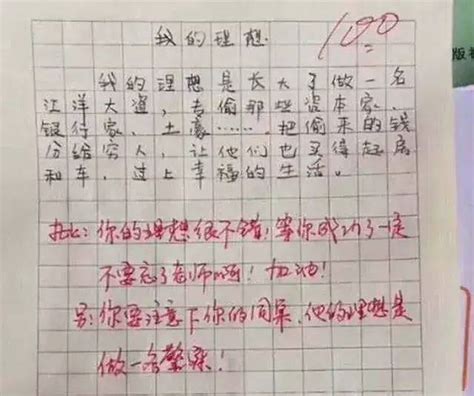 我的理想
100
我的理想是长大了做一名
江洋大盗，去偷那些资本家、
银行家、土豪……把偷来的钱
分给穷人，让他们也买得起房
和车，过上幸福的生活。
批：你的理想很不错，等你成功了一定
不要忘了老师啊！加油！
另：你要注意下你的同桌，他的理想是
做一名警察！